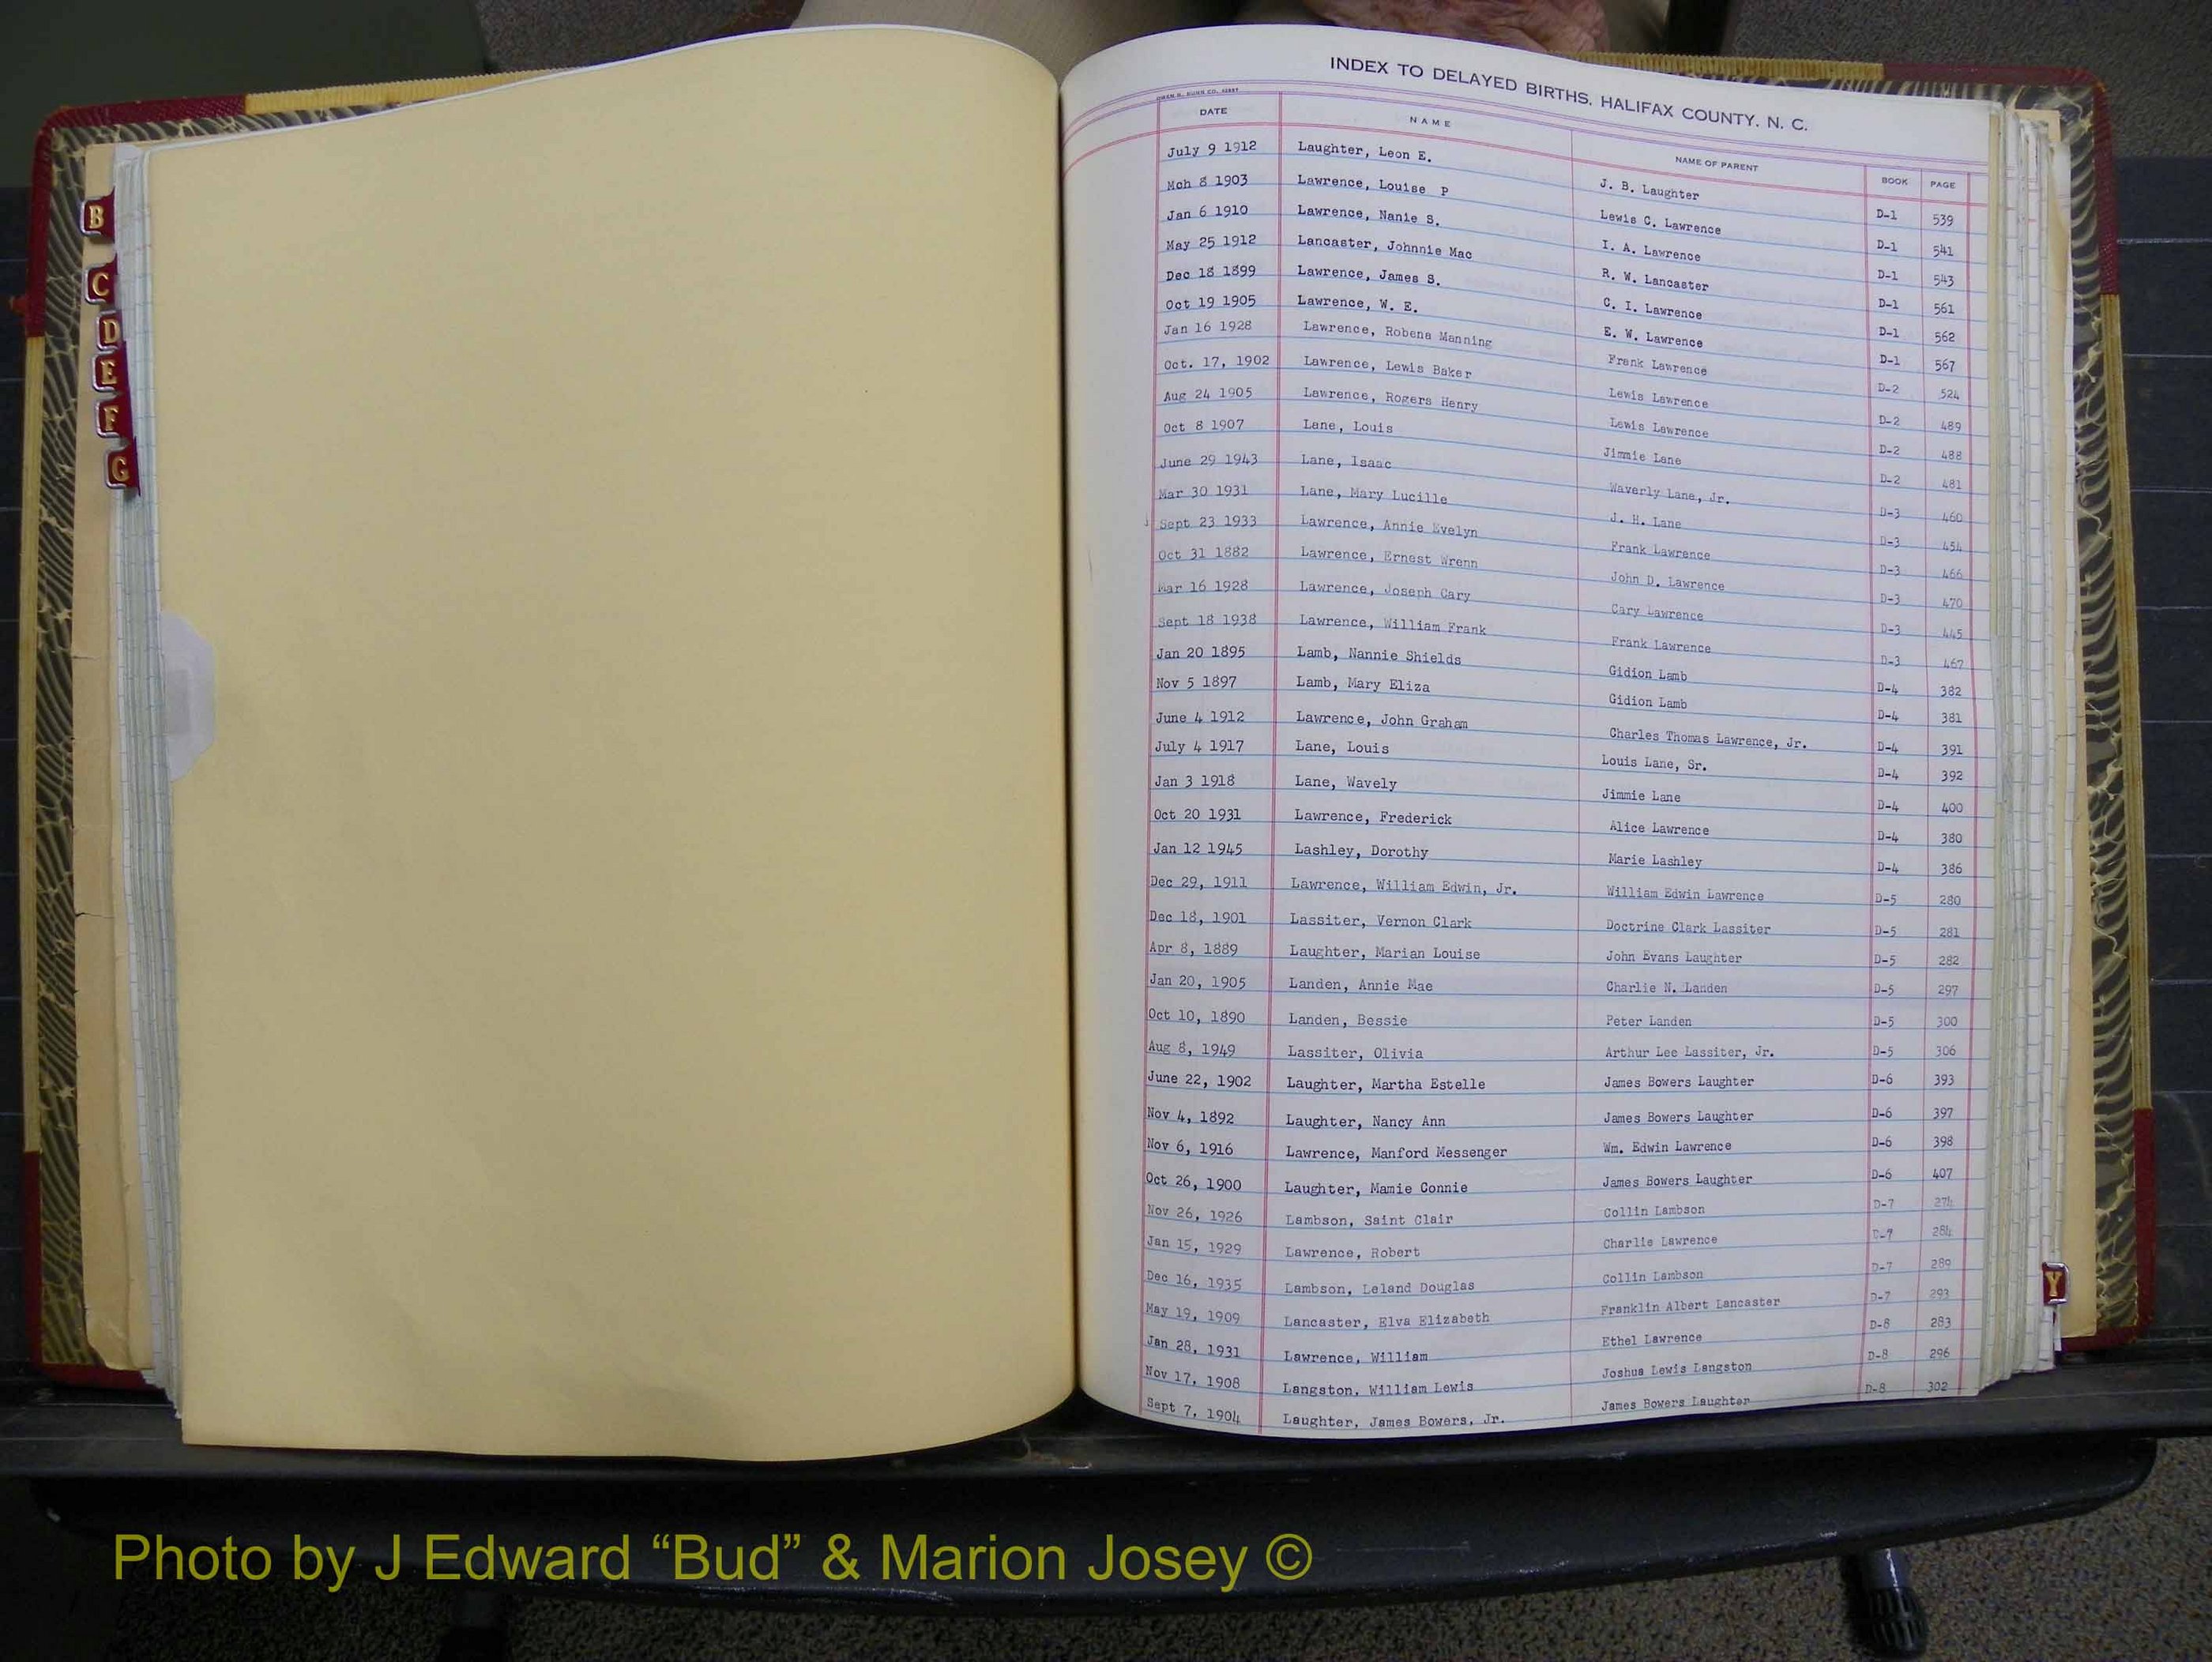 INDEX TO DELAYED BIRTHS, HALIFAX COUNTY, N. C.
OWEN G. DUNN CO.
DATE NAME NAME OF PARENT BOOK PAGE
July 9 1912 Laughter, Leon E. J. B. Laughter D-1 539
Mch 8 1903 Lawrence, Louise P Lewis C. Lawrence D-1 541
Jan 6 1910 Lawrence, Nanie S. I. A. Lawrence D-1 543
May 25 1912 Lancaster, Johnnie Mac R. W. Lancaster D-1 561
Dec 18 1899 Lawrence, James S. C. I. Lawrence D-1 562
Oct 19 1905 Lawrence, W. E. E. W. Lawrence D-1 567
Jan 16 1928 Lawrence, Robena Manning Frank Lawrence D-2 524
Oct. 17, 1902 Lawrence, Lewis Baker Lewis Lawrence D-2 489
Aug 24 1905 Lawrence, Rogers Henry Lewis Lawrence D-2 488
Oct 8 1907 Lane, Louis Jimmie Lane D-2 481
June 29 1943 Lane, Isaac Waverly Lane, Jr. D-3 460
Mar 30 1931 Lane, Mary Lucille J. H. Lane D-3 454
Sept 23 1933 Lawrence, Annie Evelyn Frank Lawrence D-3 466
Oct 31 1882 Lawrence, Ernest Wrenn John D. Lawrence D-3 470
Mar 16 1928 Lawrence, Joseph Cary Cary Lawrence D-3 445
Sept 18 1938 Lawrence, William Frank Frank Lawrence D-3 467
Jan 20 1895 Lamb, Nannie Shields Gidion Lamb D-4 382
Nov 5 1897 Lamb, Mary Eliza Gidion Lamb D-4 381
June 4 1912 Lawrence, John Graham Charles Thomas Lawrence, Jr. D-4 391
July 4 1917 Lane, Louis Louis Lane, Sr. D-4 392
Jan 3 1918 Lane, Wavely Jimmie Lane D-4 400
Oct 20 1931 Lawrence, Frederick Alice Lawrence D-4 380
Jan 12 1945 Lashley, Dorothy Marie Lashley D-4 386
Dec 29, 1911 Lawrence, William Edwin, Jr. William Edwin Lawrence D-5 280
Dec 18, 1901 Lassiter, Vernon Clark Doctrine Clark Lassiter D-5 281
Apr 8, 1889 Laughter, Marian Louise John Evans Laughter D-5 282
Jan 20, 1905 Landen, Annie Mae Charlie N. Landen D-5 297
Oct 10, 1890 Landen, Bessie Peter Landen D-5 300
Aug 8, 1949 Lassiter, Olivia Arthur Lee Lassiter, Jr. D-5 306
June 22, 1902 Laughter, Martha Estelle James Bowers Laughter D-6 393
Nov 4, 1892 Laughter, Nancy Ann James Bowers Laughter D-6 397
Nov 6, 1916 Lawrence, Manford Messenger Wm. Edwin Lawrence D-6 398
Oct 26, 1900 Laughter, Mamie Connie James Bowers Laughter D-6 407
Nov 26, 1926 Lambson, Saint Clair Collin Lambson D-7 274
Jan 15, 1929 Lawrence, Robert Charlie Lawrence D-7 284
Dec 16, 1935 Lambson, Leland Douglas Collin Lambson D-7 289
May 19, 1909 Lancaster, Elva Elizabeth Franklin Albert Lancaster D-7 293
Jan 28, 1931 Lawrence, William Ethel Lawrence D-8 283
Nov 17, 1908 Langston, William Lewis Joshua Lewis Langston D-8 296
Sept 7, 1904 Laughter, James Bowers, Jr. James Bowers Laughter D-8 302
B
C
D
E
F
G
Y
Photo by J Edward “Bud” & Marion Josey ©